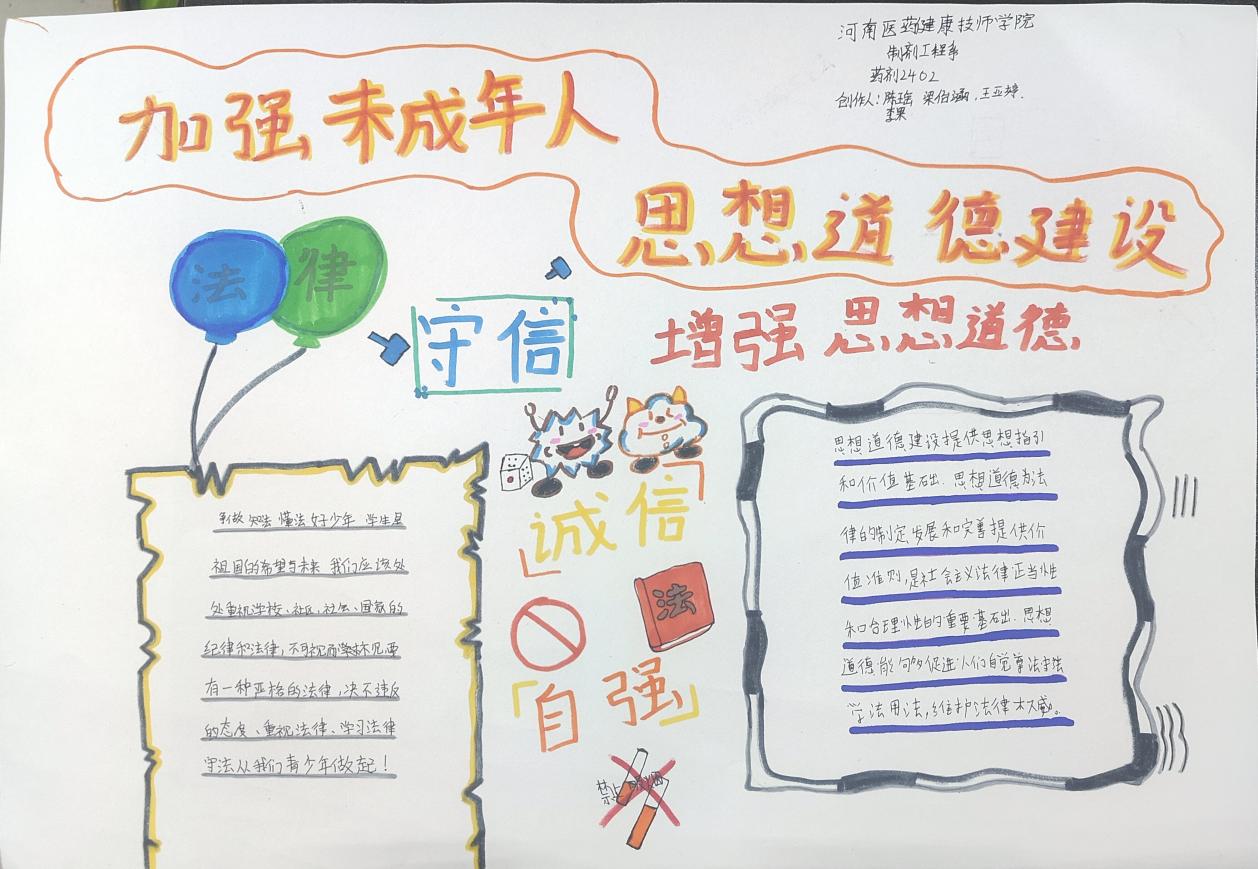 河南医药健康技师学院
制剂工程系
药剂2402
创作人:陈瑶 梁伯涵、王亚婷.
李果
加强未成年人
思想道德建设
法律
守信
增强思想道德
争做知法懂法好少年 学生是
祖国的希望与未来 我们应该处
处重视学校、社区、社会、国家的
纪律和法律,不可视而
有一种严格的法律,决不违反
的态度、重视法律、学习法律
守法从我们青少年做起!
诚信
法
「自强」
禁止吸烟
思想道德建设提供思想指引
和价值基础.思想道德为法
律的制定发展和完善提供价
值准则,是社会主义法律正当性
和合理性的重要基础.思想
道德能够促进人们自觉尊法守法
学法用法,维护法律权威。